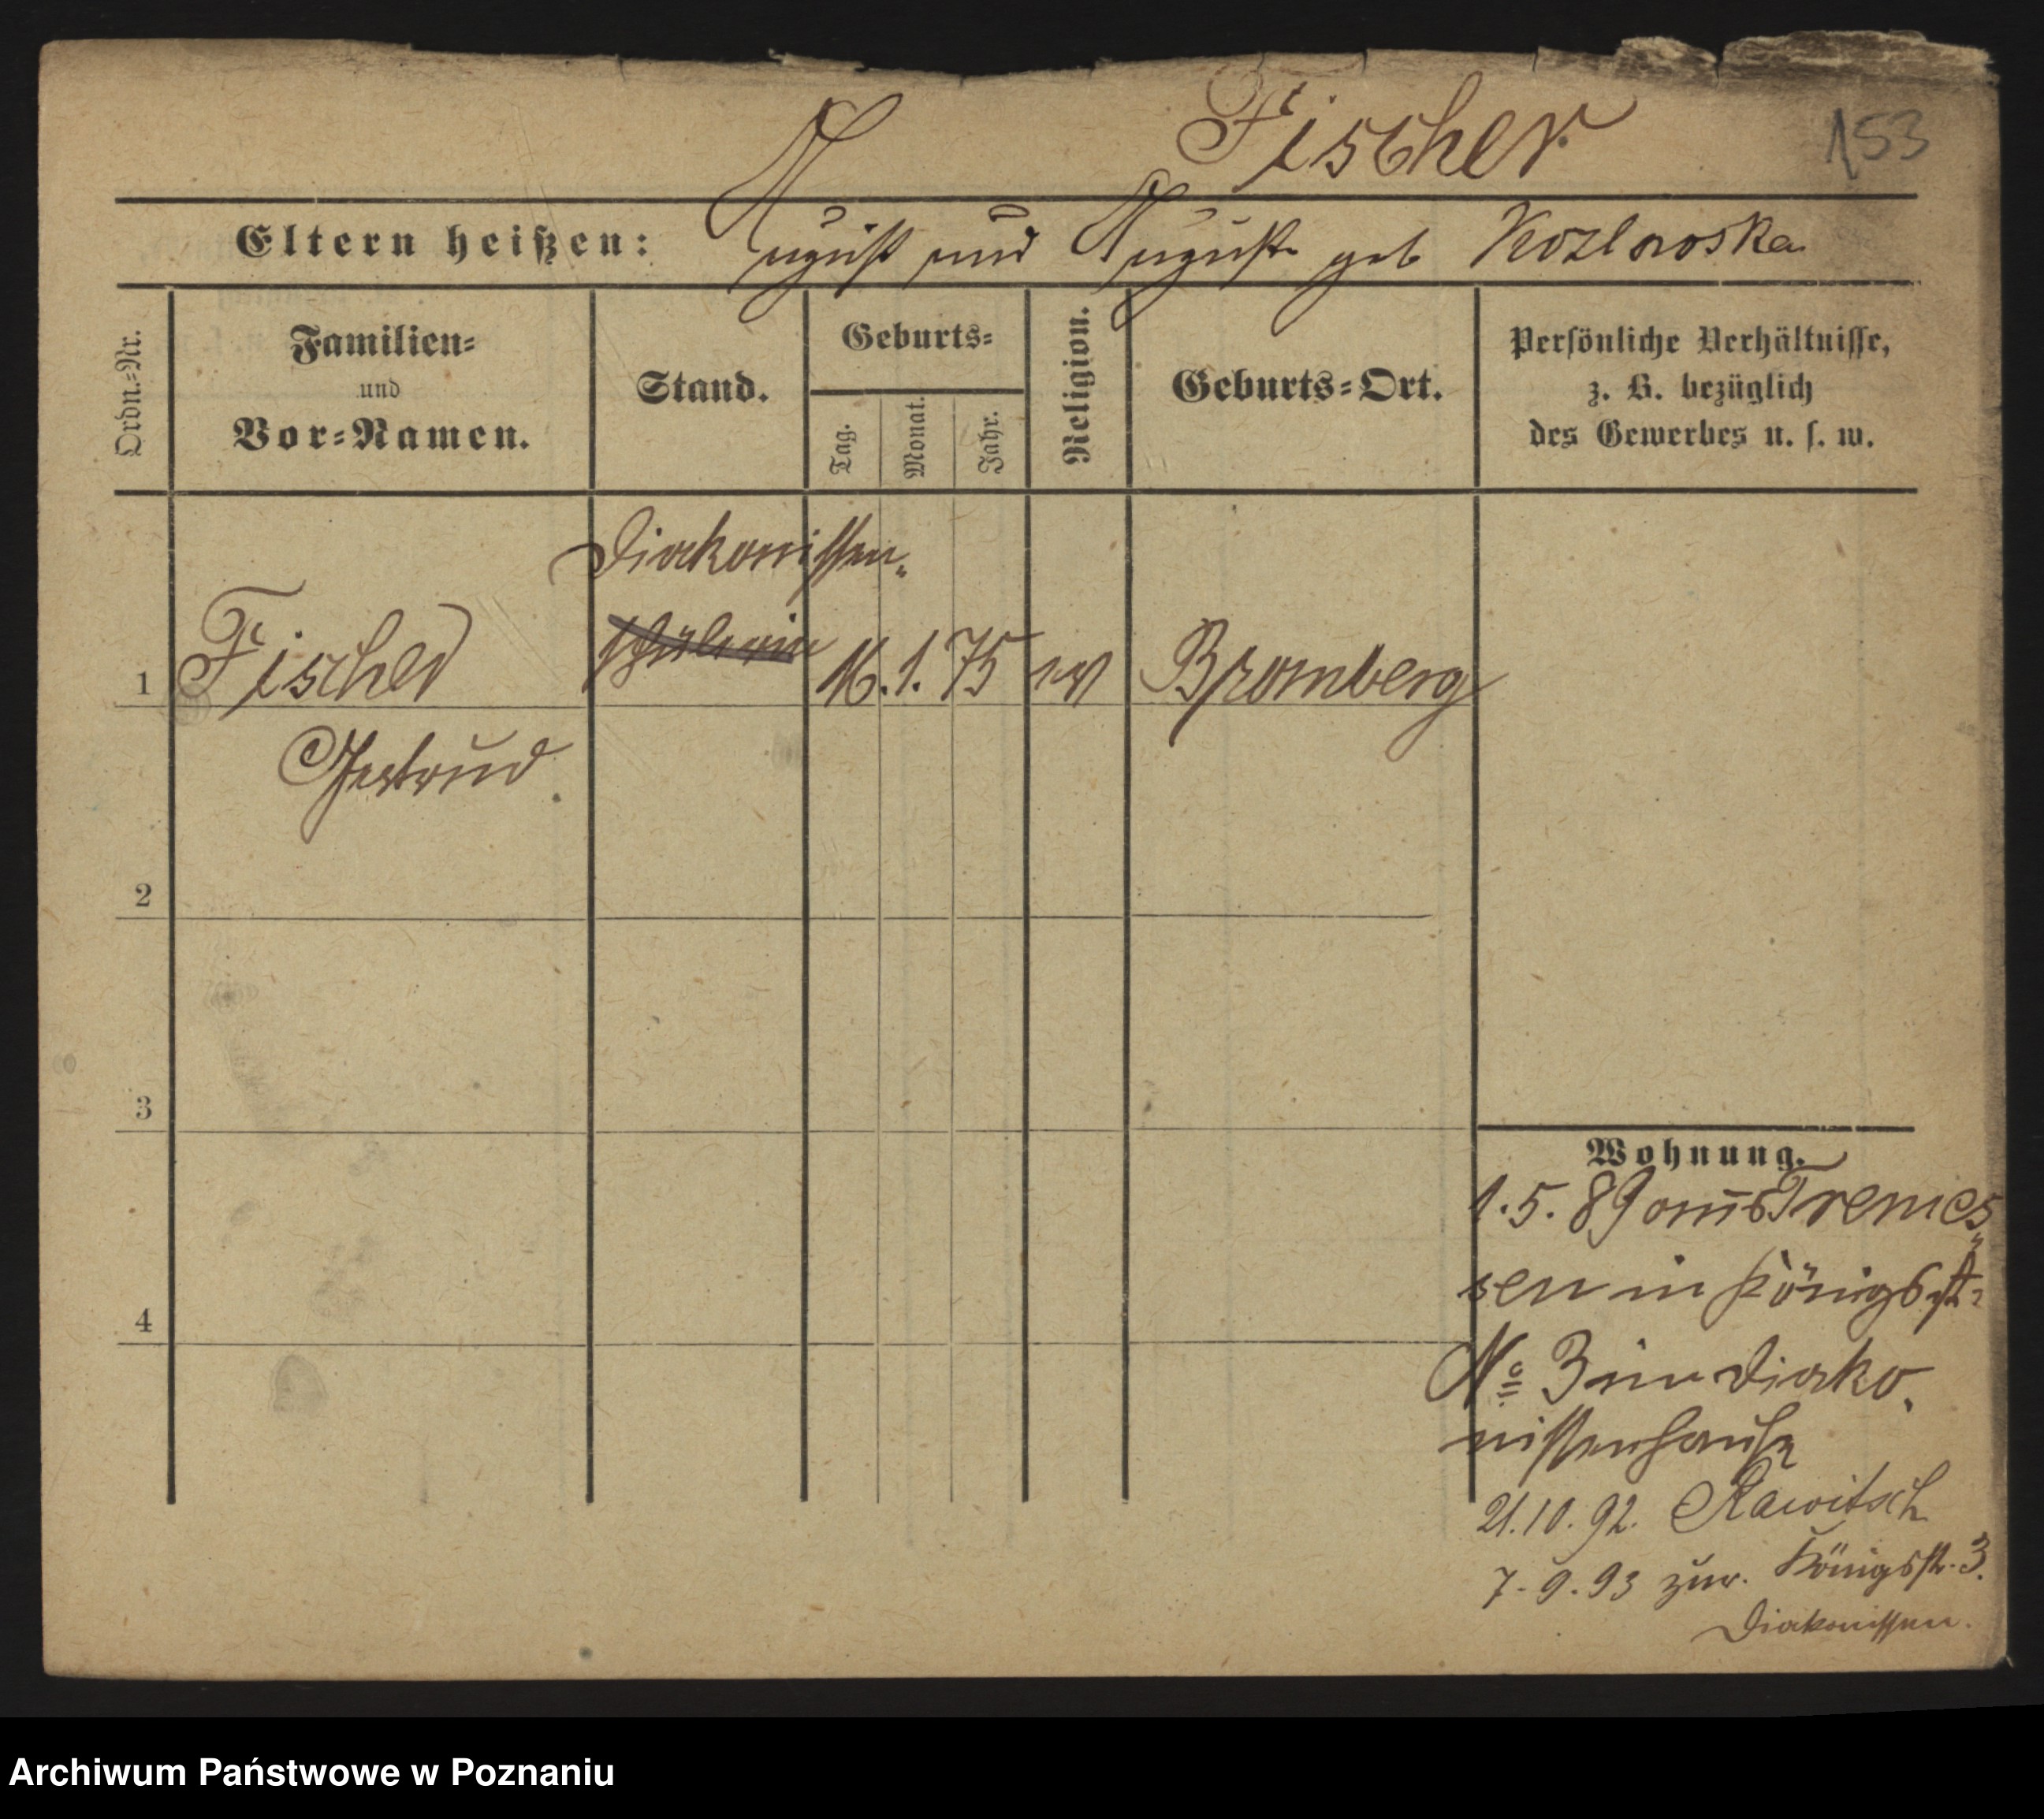 Fischer.
153
Eltern heißen: August und Auguste geb Kozlowska
Ordn.-Nr.
Familien-
und
Vor-Namen.
Stand.
Geburts-
Tag.
Monat.
Jahr.
Religion.
Geburts-Ort.
Persönliche Verhältnisse,
z. B. bezüglich
des Gewerbes u. s. w.
Diakonissen-
schülerin
1 Fischer 16. 1. 75 ev Bromberg
Gertrud
2
3
4
Wohnung.
1. 5. 89 aus Tremes-
sen in Königsstr
No 3 im Diako-
nissenhause
21. 10. 92. Rawitsch
7. 9. 93 zur. Königsstr. 3.
Diakonissen.
Archiwum Państwowe w Poznaniu